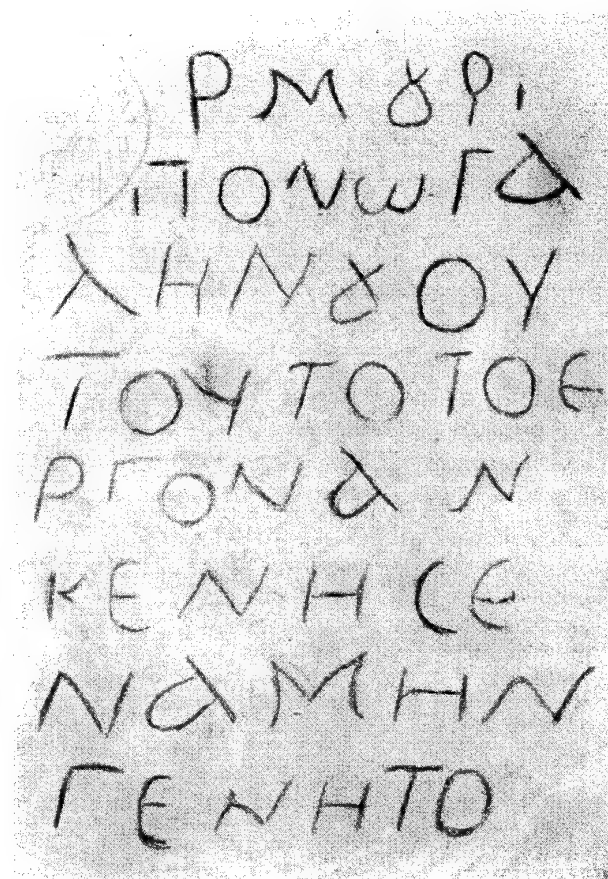 ΡΜȢΡΙ
ΠΟΝΩΓΑ
ΛΗΝȢΟΥ
ΤΟΥΤΟΤΟΕ
ΡΓΟΝΑΝ
ΚΕΝΗϹΕ
ΝΑΜΗΝ
ΓΕΝΗΤΟ